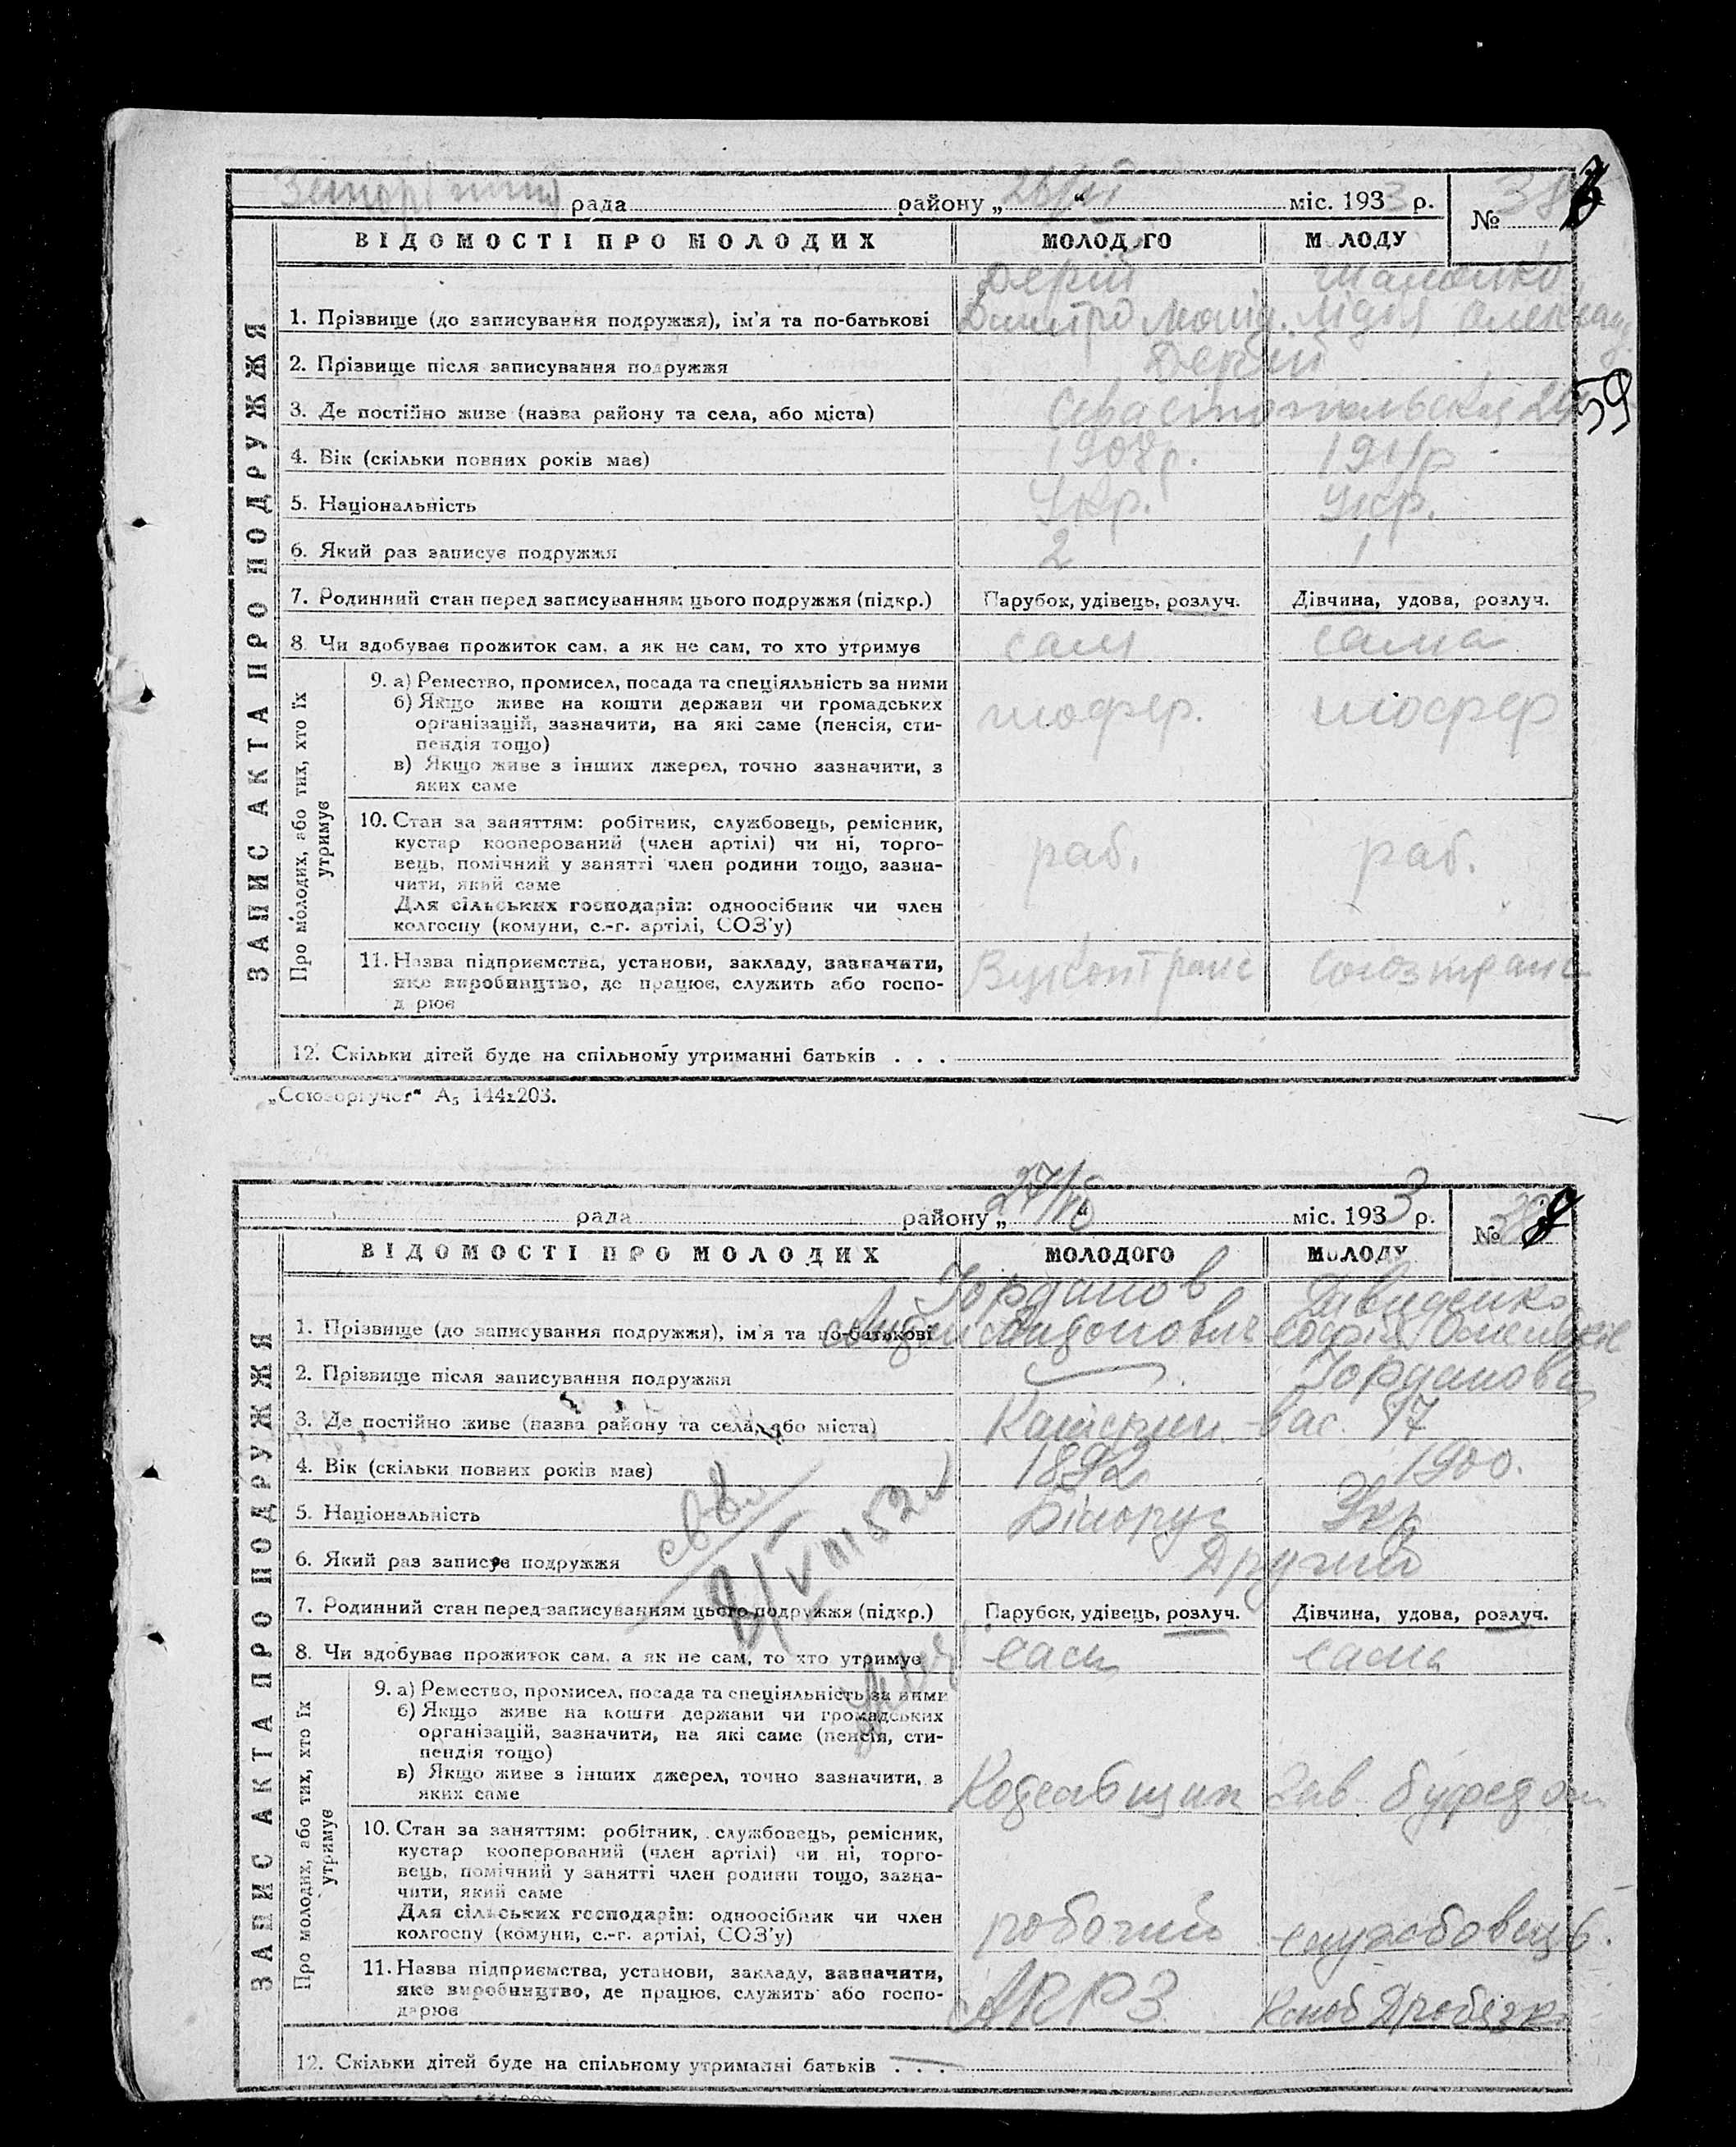 рада району „26/VI“ міс. 1933 р. № 38
ЗАПИС АКТА ПРО ПОДРУЖЖЯ
ВІДОМОСТІ ПРО МОЛОДИХ МОЛОДОГО МОЛОДУ
Дерій
1. Прізвище (до записування подружжя), ім'я та по-батькові Дмитро Лідія
2. Прізвище після записування подружжя Дерій
3. Де постійно живе (назва району та села, або міста) Севастопольська
4. Вік (скільки повних років має) 1908р. 1911р
5. Національність Укр. Укр.
6. Який раз записує подружжя 2 1
7. Родинний стан перед записуванням цього подружжя (підкр.) Парубок, удівець, розлуч. Дівчина, удова, розлуч.
8. Чи здобуває прожиток сам, а як не сам, то хто утримує сам сама
Про молодих, або тих, хто їх утримує
9. а) Ремество, промисел, посада та спеціяльність за ними
б) Якщо живе на кошти держави чи громадських шофер. шофер
організацій, зазначити, на які саме (пенсія, сти-
пендія тощо)
в) Якщо живе з інших джерел, точно зазначити, з
яких саме
10. Стан за заняттям: робітник, службовець, ремісник,
кустар кооперований (член артілі) чи ні, торго-
вець, помічний у занятті член родини тощо, зазна- раб. раб.
чити, який саме
Для сільських господарів: одноосібник чи член
колгоспу (комуни, с.-г. артілі, СОЗ'у)
11. Назва підприємства, установи, закладу, зазначити, Союзтранс
яке виробництво, де працює, служить або госпо-
дарює
12. Скільки дітей буде на спільному утриманні батьків . . .
„Союзоргучет“ А₅ 144x203.
59
рада району „27/VI“ міс. 1933 р. №
ЗАПИС АКТА ПРО ПОДРУЖЖЯ
ВІДОМОСТІ ПРО МОЛОДИХ МОЛОДОГО МОЛОДУ
Йорданов Давиденко
1. Прізвище (до записування подружжя), ім'я та по-батькові Софія
2. Прізвище після записування подружжя Йорданова
3. Де постійно живе (назва району та села, або міста) 97
4. Вік (скільки повних років має) 1892 1900.
5. Національність Білорус Укр
6. Який раз записує подружжя Другий
7. Родинний стан перед записуванням цього подружжя (підкр.) Парубок, удівець, розлуч. Дівчина, удова, розлуч.
8. Чи здобуває прожиток сам, а як не сам, то хто утримує сам сама
Про молодих, або тих, хто їх утримує
9. а) Ремество, промисел, посада та спеціяльність за ними
б) Якщо живе на кошти держави чи громадських
організацій, зазначити, на які саме (пенсія, сти-
пендія тощо)
в) Якщо живе з інших джерел, точно зазначити, з Зав. буфедом
яких саме
10. Стан за заняттям: робітник, службовець, ремісник,
кустар кооперований (член артілі) чи ні, торго-
вець, помічний у занятті член родини тощо, зазна-
чити, який саме
Для сільських господарів: одноосібник чи член
колгоспу (комуни, с.-г. артілі, СОЗ'у) робочий службовець.
11. Назва підприємства, установи, закладу, зазначити,
яке виробництво, де працює, служить або госпо- АРРЗ
дарює
12. Скільки дітей буде на спільному утриманні батьків . . .